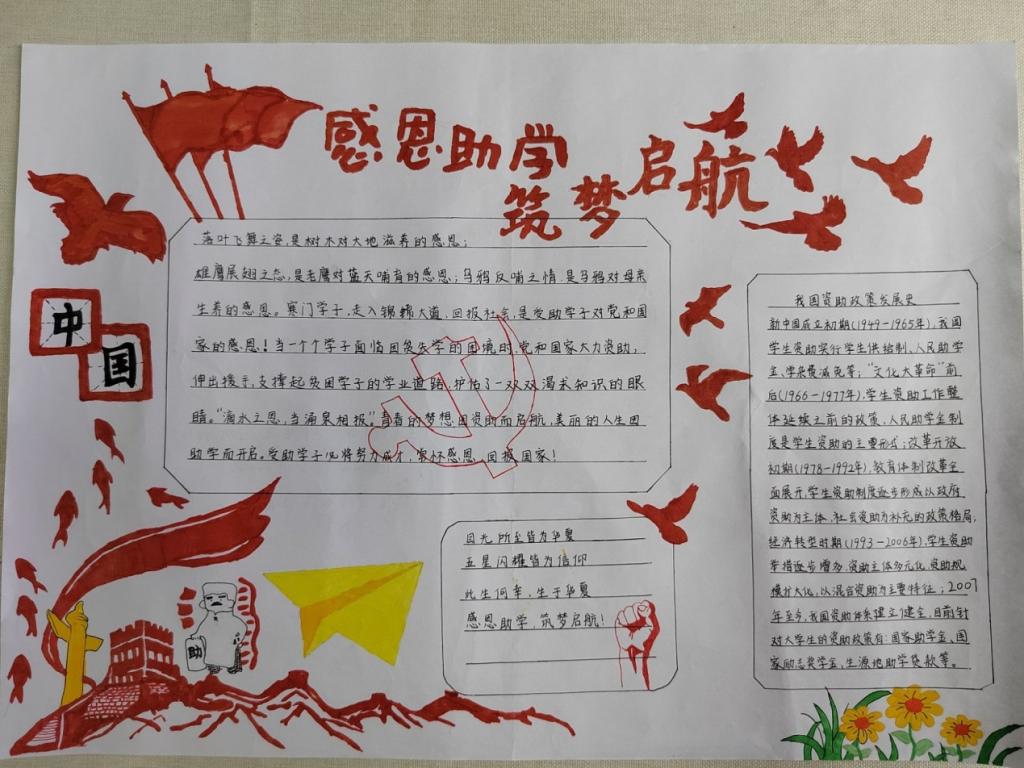 感恩助学
筑梦启航
中
国
落叶飞舞之姿,是树木对大地滋养的感恩;
雄鹰展翅之态,是老鹰对蓝天哺育的感恩;乌鸦反哺之情,是乌鸦对母亲
生养的感恩。寒门学子,走入锦绣大道,回报社会,是受助学子对党和国
家的感恩!当一个个学子面临因贫失学的困境时,党和国家大力资助,
伸出援手,支撑起贫困学子的学业道路,护佑了一双双渴求知识的眼
睛。"滴水之恩,当涌泉相报。"青春的梦想因资助而启航,美丽的人生因
助学而开启。受助学子们将努力成才,常怀感恩,回报国家!
目光所至皆为华夏
五星闪耀皆为信仰
此生何幸,生于华夏
感恩助学,筑梦启航!
助
我国资助政策发展史
新中国成立初期(1949-1965年),我国
学生资助实行学生供给制,人民助学
金,学杂费减免等;"文化大革命"前
后(1966-1977年),学生资助工作整
体延续之前的政策,人民助学金制
度是学生资助的主要形式;改革开放
初期(1978-1992年),教育体制改革全
面展开,学生资助制度逐步形成以政府
资助为主体,社会资助为补充的政策格局;
经济转型时期(1993-2006年),学生资助
举措逐步增多,资助主体多元化,资助规
模扩大化,以混合资助为主要特征;2007
年至今,我国资助体系建立健全,目前针
对大学生的资助政策有:国家助学金,国
家励志奖学金,生源地助学贷款等。